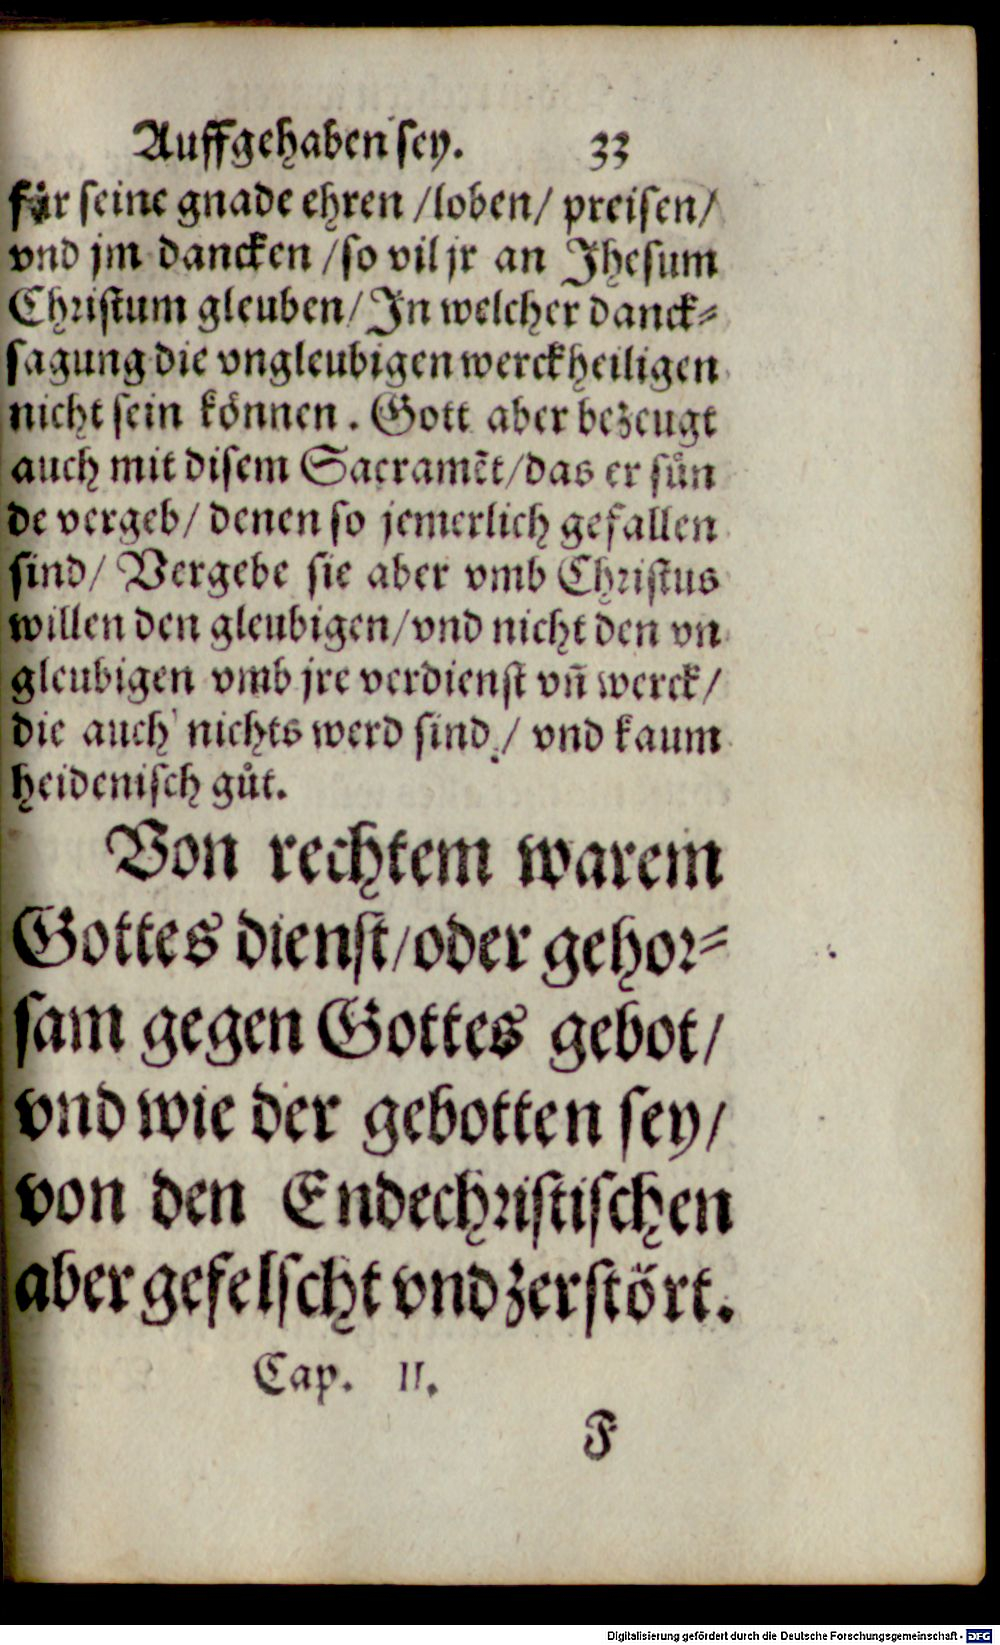 Auffgehaben sey. 33
für seine gnade ehren /loben/ preisen/
vnd jm dancken /so vil jr an Jhesum
Christum gleuben/ In welcher danck⸗
sagung die vngleubigen werckheiligen
nicht sein können. Gott aber bezeugt
auch mit disem Sacramẽt/das er sün
de vergeb/ denen so jemerlich gefallen
sind/ Vergebe sie aber vmb Christus
willen den gleubigen/vnd nicht den vn
gleubigen vmb jre verdienst vñ werck/
die auch nichts werd sind / vnd kaum
heidenisch gůt.
Von rechtem warem
Gottes dienst/oder gehor⸗
sam gegen Gottes gebot/
vnd wie der gebotten sey/
von den Endechristischen
aber gefelscht vnd zerstört.
Cap. II.
F
Digitalisierung gefördert durch die Deutsche Forschungsgemeinschaft - DFG